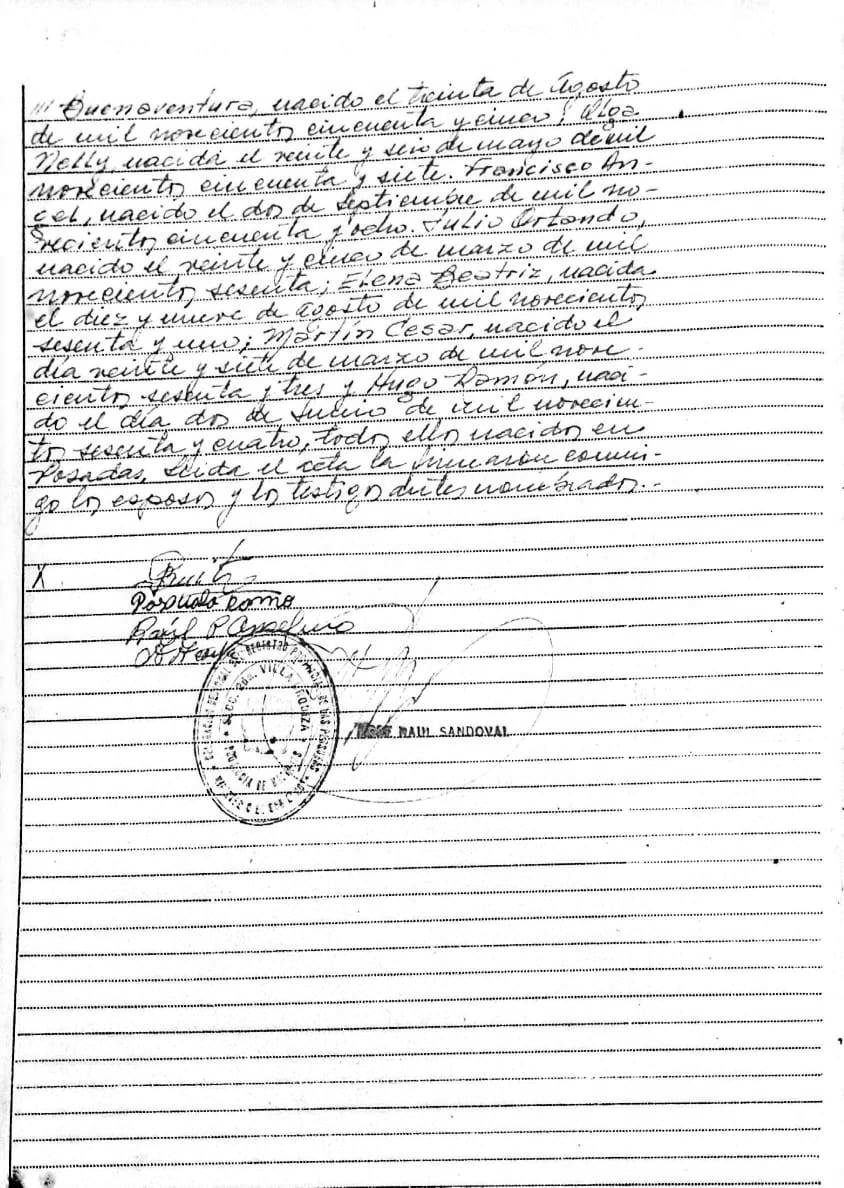 /// Buenaventura, nacido el treinta de Agosto
de mil novecientos cincuenta y cinco; Olga
Nelly, nacida el veinte y seis de mayo de mil
novecientos cincuenta y siete. Francisco An-
gel, nacido el dos de septiembre de mil no-
vecientos cincuenta y ocho. Julio Orlando,
nacido el veinte y cinco de marzo de mil
novecientos sesenta; Elena Beatriz, nacida
el diez y nueve de agosto de mil novecientos
sesenta y uno; Martín Cesar, nacido el
día veinte y siete de marzo de mil nove-
cientos sesenta y tres y Hugo Ramón, naci-
do el día dos de Junio de mil novecien-
tos sesenta y cuatro, todos ellos nacidos en
Posadas. Leida el acta la firmaron conmi-
go los esposos y los testigos antes nombrados.-
X
VILLA URQUIZA
RAUL SANDOVAL